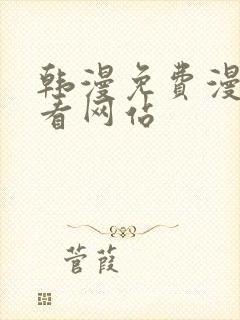 韩漫免费漫
看网站
菅葭